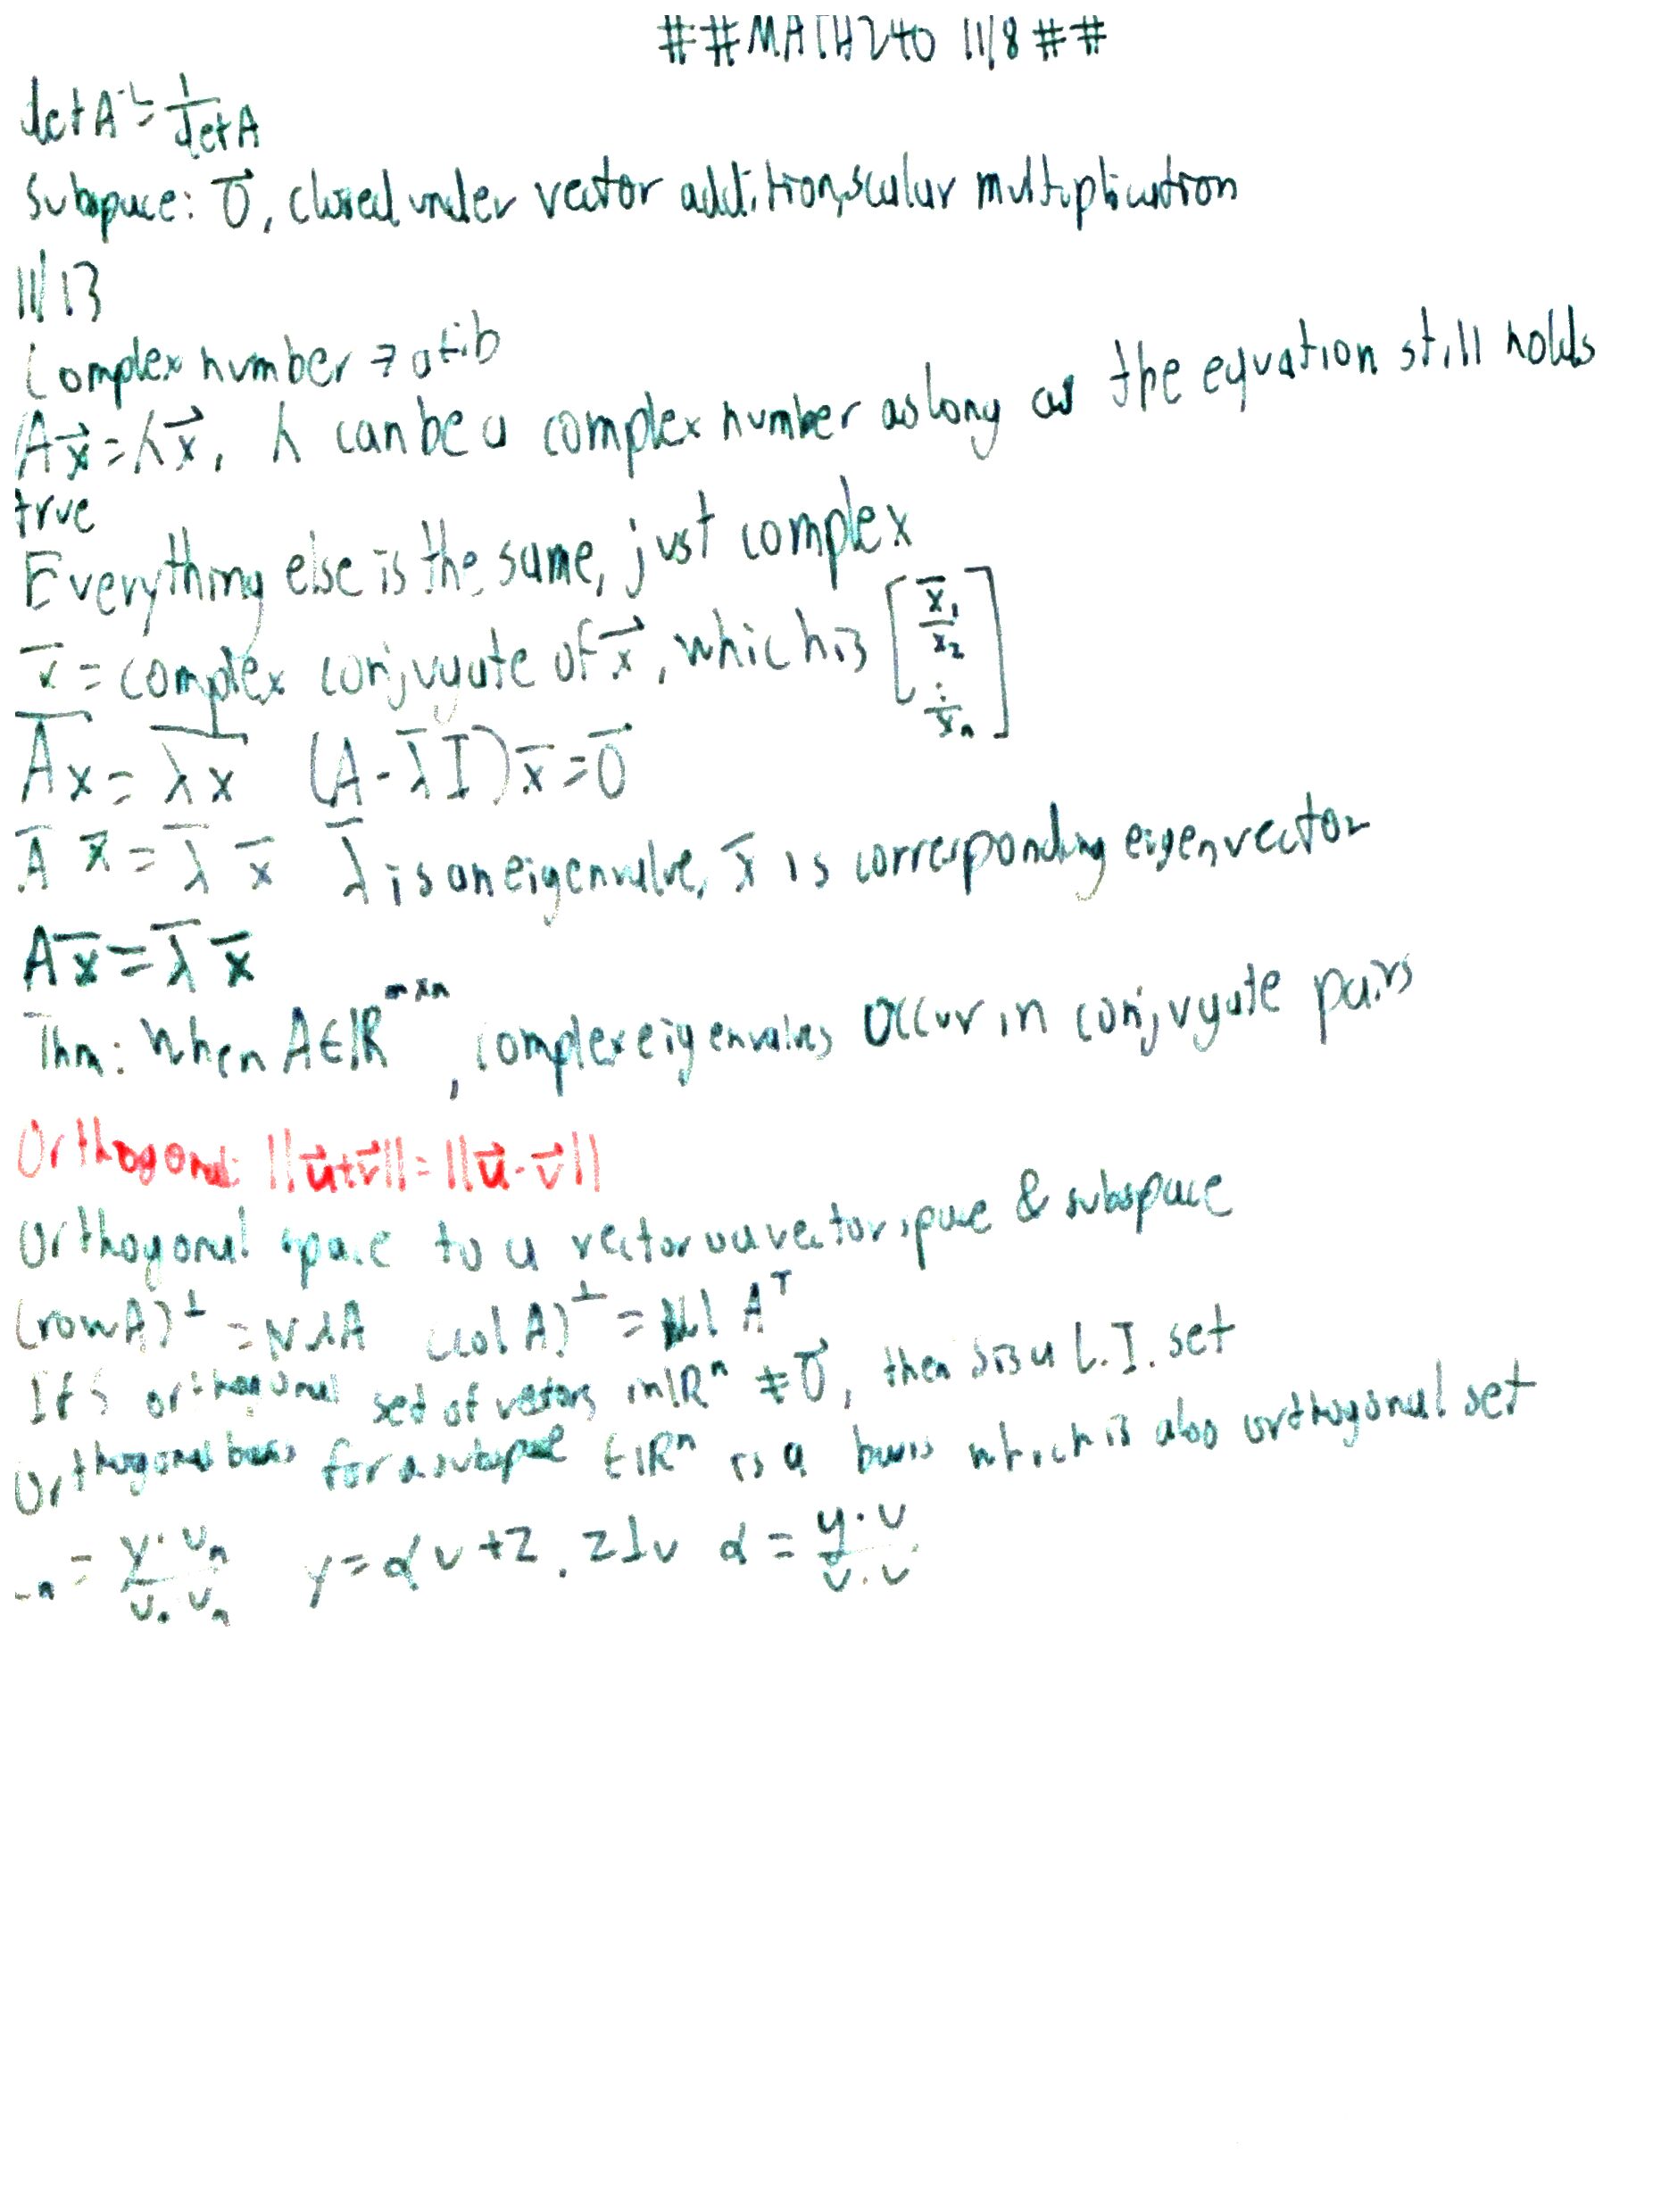 ##MATH240 11/8##
det A⁻¹ = 1/det A
Subspace: 0⃗, closed under vector addition, scalar multiplication
11/13
Complex number → a+ib
Ax⃗=λx⃗, λ can be a complex number as long as the equation still holds
true
Everything else is the same, just complex
x̄ = complex conjugate of x⃗, which is [x̄₁ x̄₂ ⋮ x̄ₙ]
A̅x̅ = λ̅x̅ (A-λ̄I)x̄=0⃗
Ā x̄ = λ̄ x̄ λ̄ is an eigenvalue, x̄ is corresponding eigenvector
Ax̄=λ̄x̄
Thm: When A∈ℝᵐˣⁿ, complex eigenvalues occur in conjugate pairs
Orthogonal: ||u⃗+v⃗||=||u⃗-v⃗||
Orthogonal space to a vector vector space & subspace
(row A)^⊥ = Nul A (col A)^⊥ = Nul Aᵀ
If S orthogonal set of vectors in ℝⁿ ≠ 0⃗, then S is a L.I. set
Orthogonal basis for a subspace ∈ℝⁿ is a basis which is also orthogonal set
= y·vₙ/vₙ·vₙ y=αv+z, z⊥v α = y·v/v·v